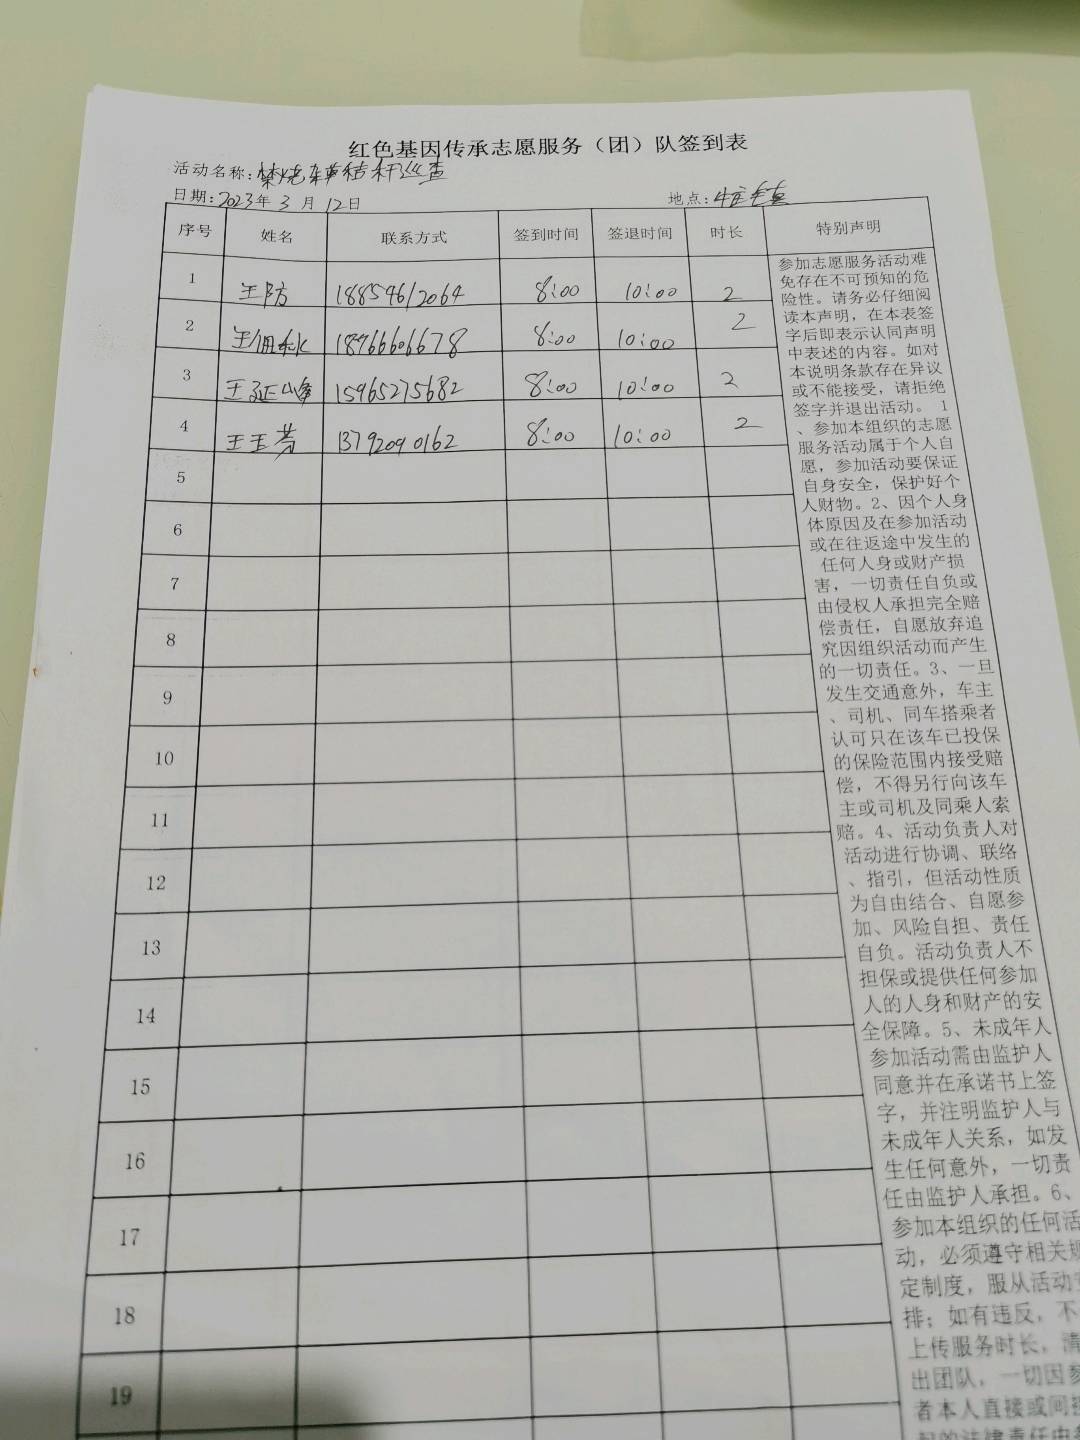 红色基因传承志愿服务（团）队签到表
活动名称：禁烧秸秆巡查
日期：2023年3月12日 地点：
序号 姓名 联系方式 签到时间 签退时间 时长 特别声明
1 王防 18854612064 8:00 10:00 2
2 18966606678 8:00 10:00 2
3 王延峰 15965275682 8:00 10:00 2
4 王玉芳 13792090162 8:00 10:00 2
5
6
7
8
9
10
11
12
13
14
15
16
17
18
19
参加志愿服务活动难
免存在不可预知的危
险性。请务必仔细阅
读本声明，在本表签
字后即表示认同声明
中表述的内容。如对
本说明条款存在异议
或不能接受，请拒绝
签字并退出活动。 1
、参加本组织的志愿
服务活动属于个人自
愿，参加活动要保证
自身安全，保护好个
人财物。2、因个人身
体原因及在参加活动
或在往返途中发生的
任何人身或财产损
害，一切责任自负或
由侵权人承担完全赔
偿责任，自愿放弃追
究因组织活动而产生
的一切责任。3、一旦
发生交通意外，车主
、司机、同车搭乘者
认可只在该车已投保
的保险范围内接受赔
偿，不得另行向该车
主或司机及同乘人索
赔。4、活动负责人对
活动进行协调、联络
、指引，但活动性质
为自由结合、自愿参
加、风险自担、责任
自负。活动负责人不
担保或提供任何参加
人的人身和财产的安
全保障。5、未成年人
参加活动需由监护人
同意并在承诺书上签
字，并注明监护人与
未成年人关系，如发
生任何意外，一切责
任由监护人承担。6、
参加本组织的任何活
动，必须遵守相关规
定制度，服从活动安
排；如有违反，不
上传服务时长，清
出团队，一切因参
者本人直接或间接